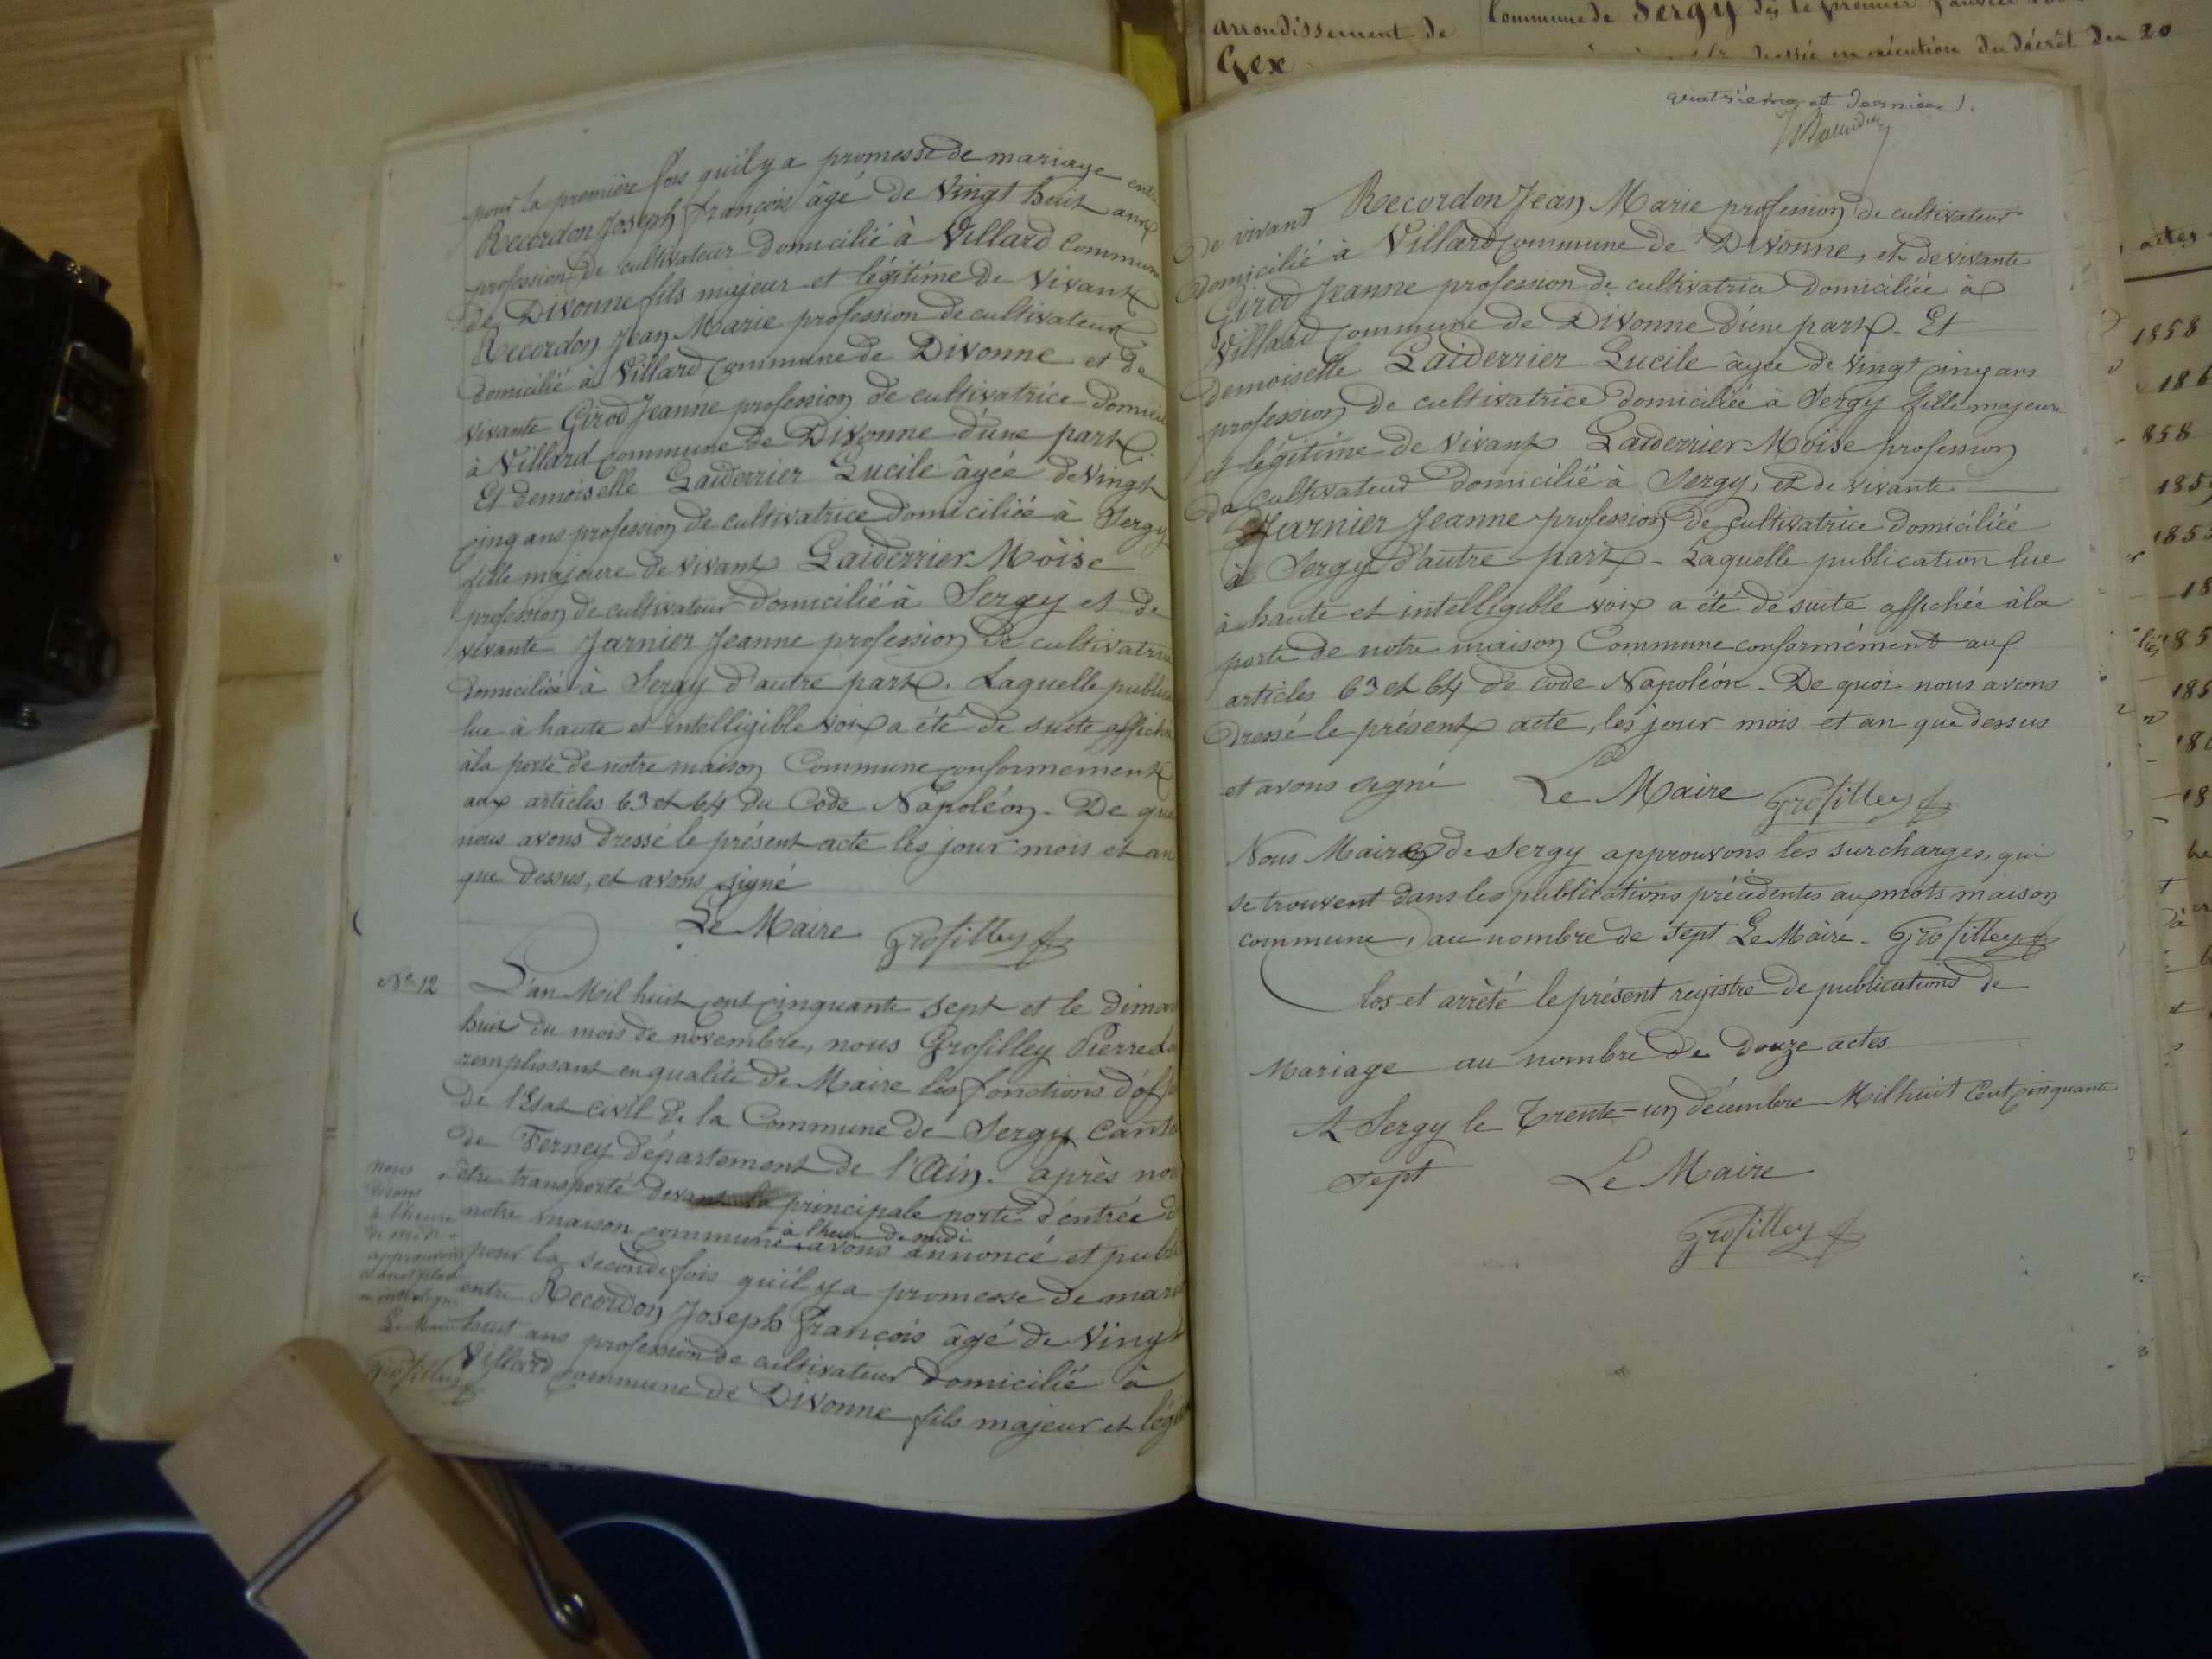 pour la première fois qu'il y a promesse de mariage entre
Recordon Joseph François âgé de Vingt huit ans
profession de cultivateur domicilié à Villard Commune
de Divonne fils majeur et légitime de Vivant
Recordon Jean Marie profession de cultivateur
domicilié à Villard Commune de Divonne et de
vivante Girod Jeanne profession de cultivatrice domicilié
à Villard commune de Divonne d'une part.
Et demoiselle Laiderrier Lucile âgée de Vingt
cinq ans profession de cultivatrice domiciliée à Sergy
fille majeure de vivant Laiderrier Moïse
profession de cultivateur domicilié à Sergy et de
vivante Jarnier Jeanne profession de cultivatrice
domiciliée à Sergy d'autre part. Laquelle publica
lue à haute et intelligible voix a été de suite affiché
à la porte de notre maison Commune conformement
aux articles 63 et 64 du Code Napoléon. De quo
nous avons dressé le présent acte les jour mois et an
que dessus, et avons signé
Le Maire Grosilley
N° 12 L'an Mil huit cent cinquante sept et le diman
huit du mois de novembre, nous Grosilley Pierre
remplissant en qualité de Maire les fonctions d'off
de l'Etat civil de la Commune de Sergy Canto
de Ferney département de l'Ain. après nou
être transporté devant la principale porte d'entrée d
notre maison commune à l'heure de midi avons annoncé et publ
pour la seconde fois qu'il y a promesse de mari
entre Recordon Joseph François âgé de Vingt
huit ans profession de cultivateur domicilié à
Villard commune de Divonne fils majeur et légi
nous
disons
à l'heure
de midi
approuvons
Le Maire
Grosilley
arrondissement de
Gex
Commune de Sergy dès le premier Janvier
en exécution du décret du 20
quatrième et dernier).
de vivant Recordon Jean Marie profession de cultivateur
domicilié à Villard Commune de Divonne, et de vivante
Girod Jeanne profession de cultivatrice domiciliée à
Villard Commune de Divonne d'une part. Et
demoiselle Laiderrier Lucile âgée de vingt cinq ans
profession de cultivatrice domiciliée à Sergy fille majeure
et légitime de vivant Laiderrier Moïse profession
de cultivateur domicilié à Sergy, et de vivante
Jarnier Jeanne profession de cultivatrice domiciliée
à Sergy d'autre part. Laquelle publication lue
à haute et intelligible voix a été de suite affichée à la
porte de notre maison Commune conformément aux
articles 63 et 64 de code Napoléon. De quoi nous avons
dressé le présent acte, les jour mois et an que dessus
et avons signé Le Maire Grosilley
Nous Maire de Sergy approuvons les surcharges, qui
se trouvent dans les publications précédentes aux mots maison
commune, au nombre de sept Le Maire. Grosilley
Clos et arrêté le présent registre de publications de
Mariage au nombre de douze actes
A Sergy le Trente-un décembre Mil huit Cent cinquante
sept Le Maire
Grosilley
actes
1858
186
858
185
1855
18
85
185
18